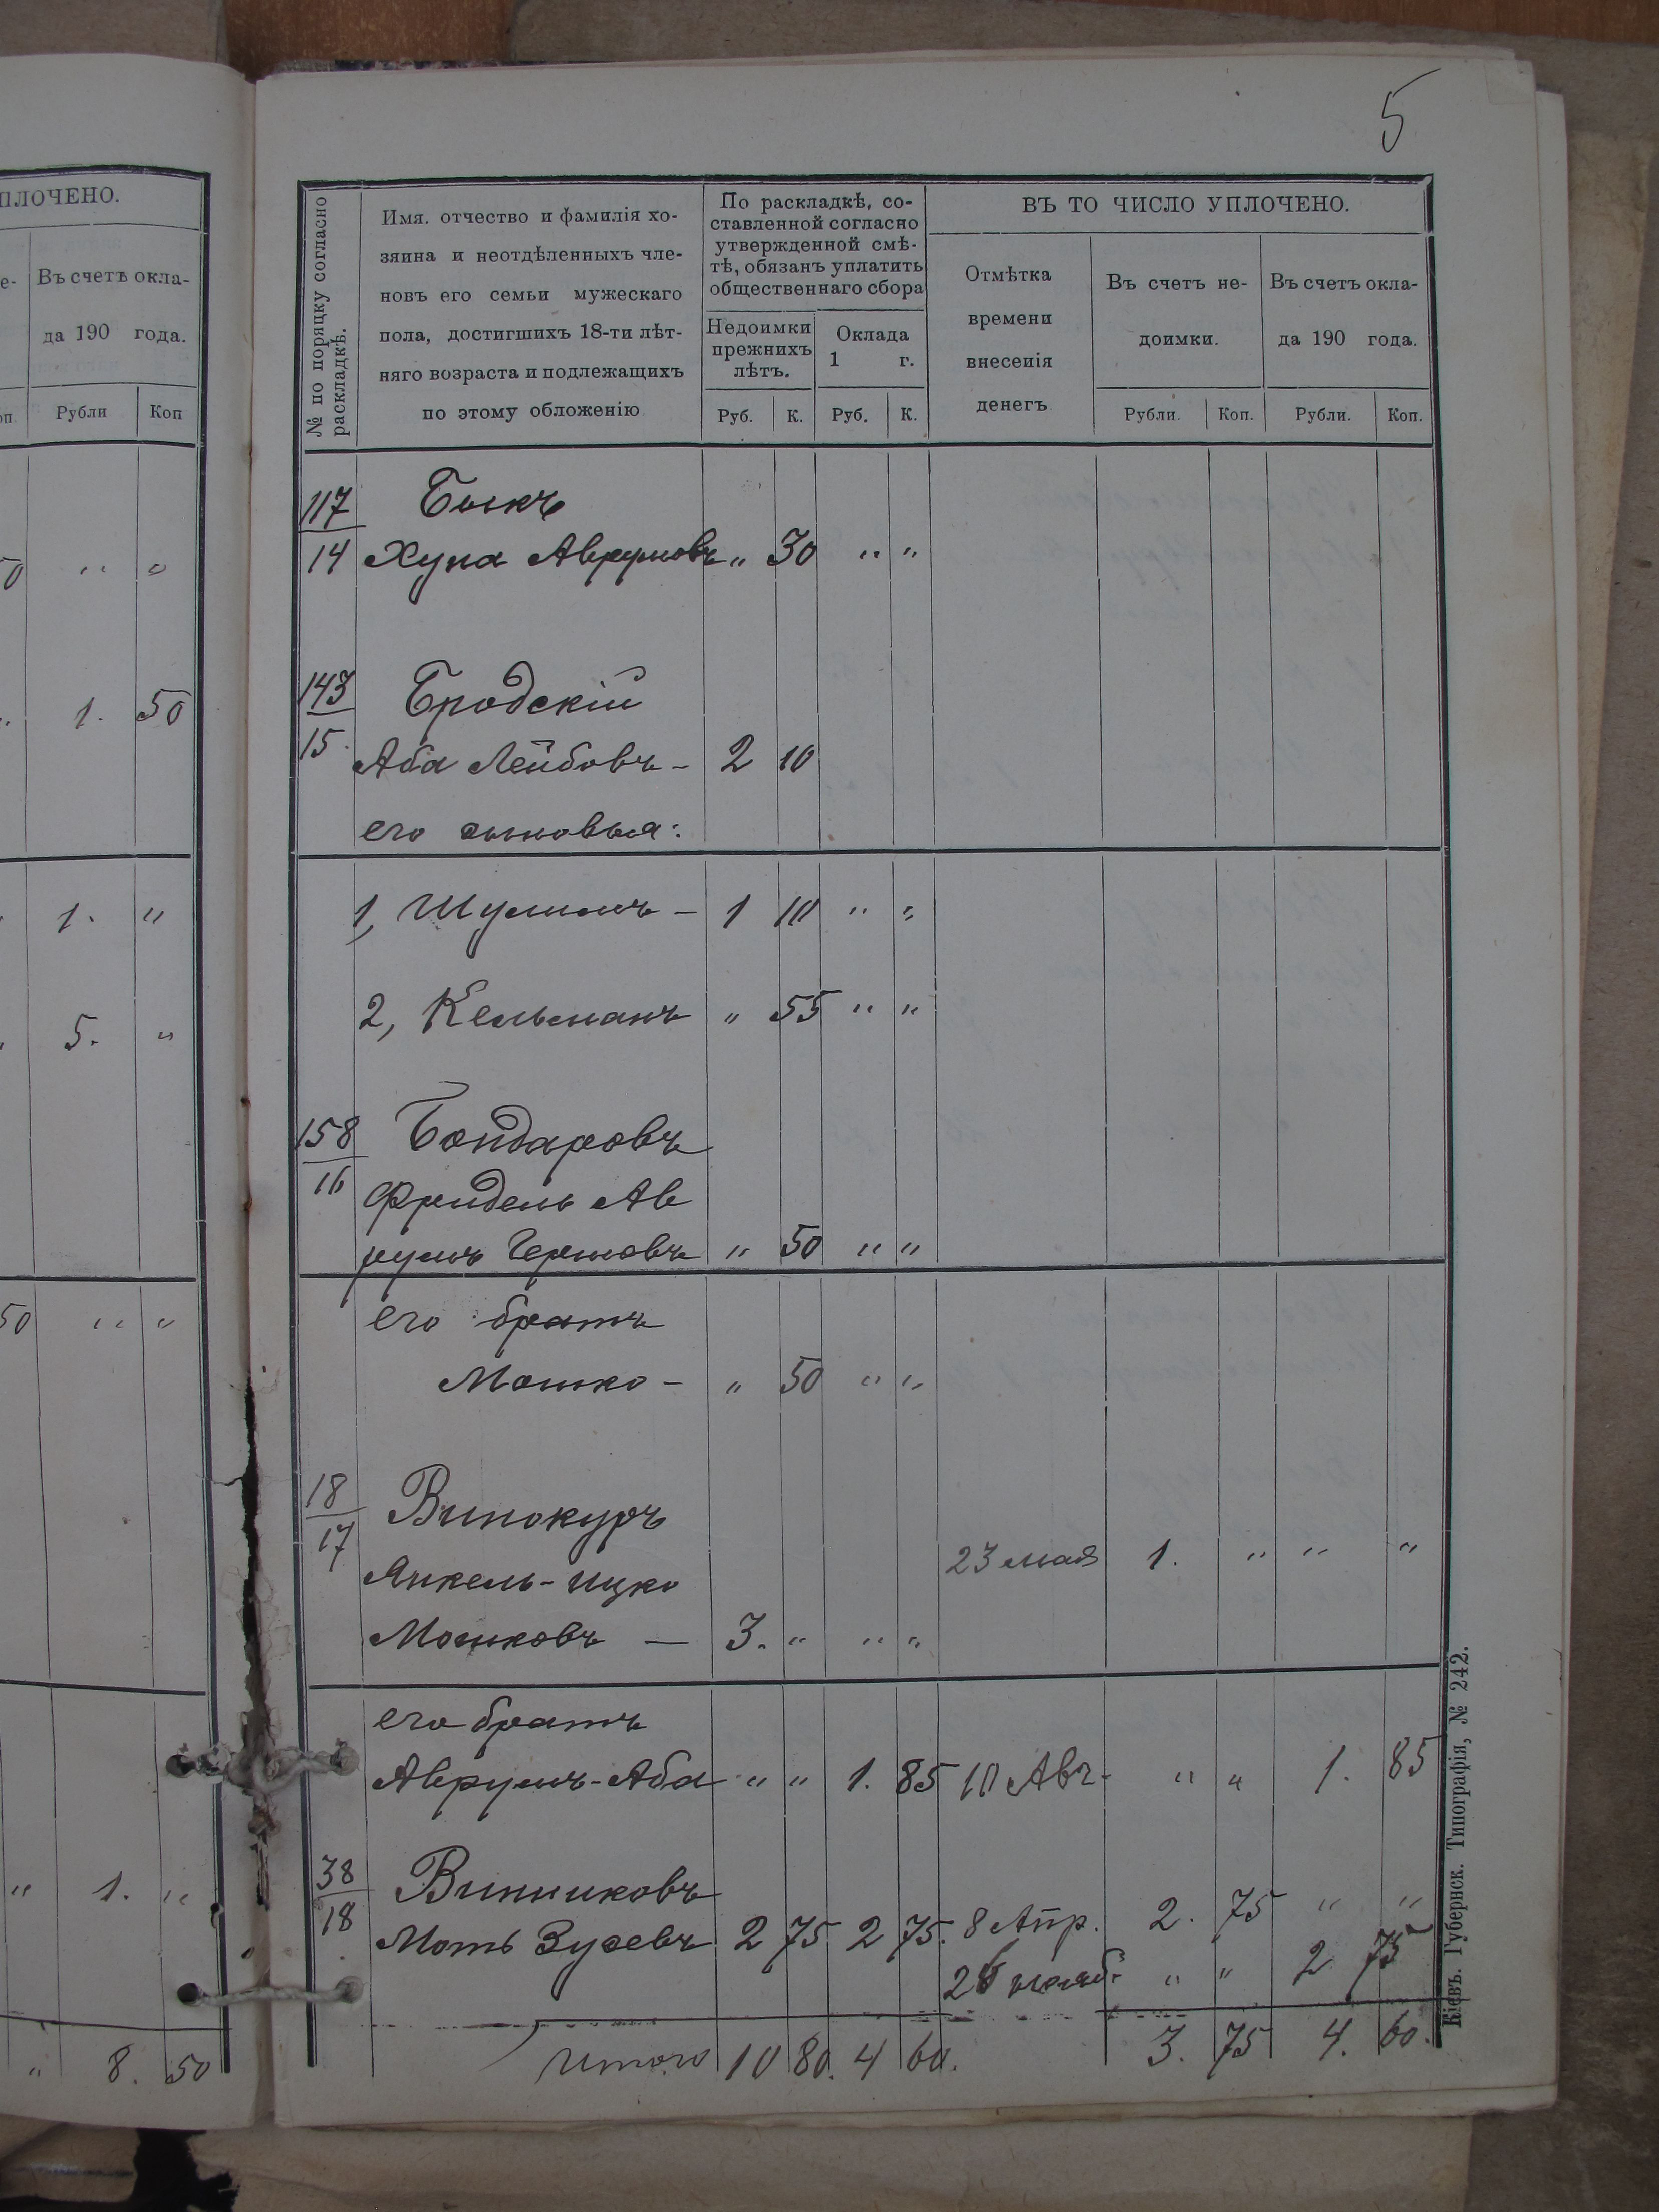 ПЛОЧЕНО.
Въ счетъ окла-
да 190 года.
Рубли Коп
50 " "
1. 50
1. "
5. "
50 " "
" 1. "
" 8. 50
5
№ по поряцку согласно раскладкѣ.
Имя. отчество и фамилія хо-
зяина и неотдѣленныхъ чле-
новъ его семьи мужескаго
пола, достигшихъ 18-ти лѣт-
няго возраста и подлежащихъ
по этому обложенію
По раскладкѣ, со-
ставленной согласно
утвержденной смѣ-
тѣ, обязанъ уплатить
общественнаго сбора
Недоимки
прежнихъ
лѣтъ.
Оклада
1 г.
Руб. К. Руб. К.
ВЪ ТО ЧИСЛО УПЛОЧЕНО.
Отмѣтка
времени
внесенія
денегъ
Въ счетъ не-
доимки.
Въ счетъ окла-
да 190 года.
Рубли. Коп. Рубли. Коп.
117 Быкъ
14 Хуна Аврумовъ " 30 " "
143 Бродскій
15. Аба Лейбовъ - 2 10
его сыновья:
1, Шулимъ - 1 10 " "
2, Кельманъ " 55 " "
158 Бондаровъ
16 Фридель Ав
румъ Гершовъ " 50 " "
его братъ
Мошко - " 50 " "
18 Винокуръ
17 23 мая 1. " " "
Янкель-Ицко
Мошковъ — 3. " " "
его братъ
Аврумъ-Аба " " 1. 85 10 Авг. " " 1. 85
38 Винниковъ
18 Моть Зусевъ 2 75 2 75. 8 Апр. 2. 75 " "
26 нояб. " " 2 75
Итого 10 80. 4 60. 3. 75 4. 60.
Кіевъ. Губернск. Типографія, № 242.